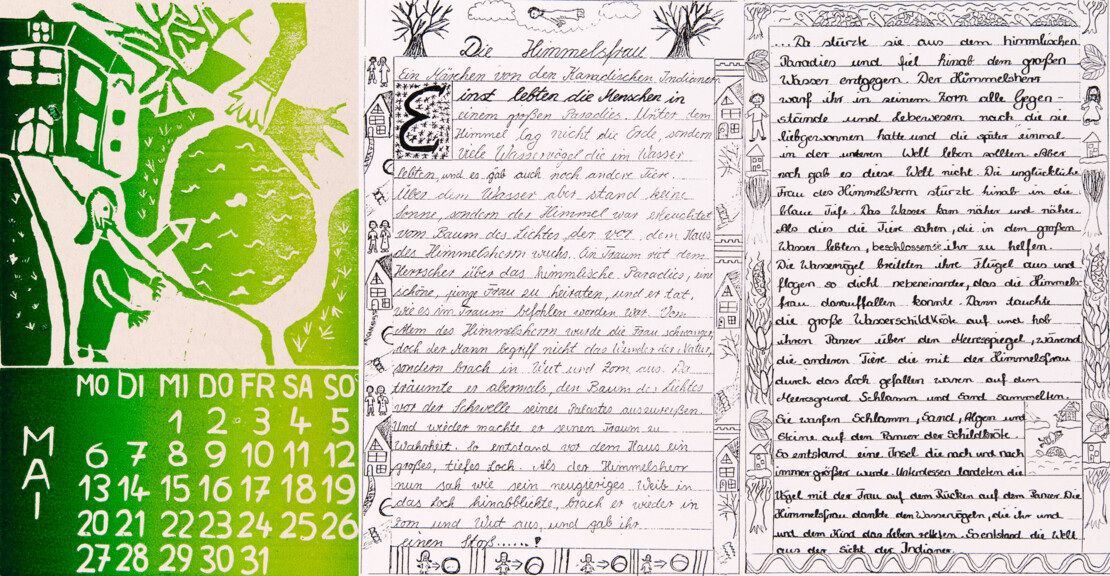 MAI
MO DI MI DO FR SA SO
1 2 3 4 5
6 7 8 9 10 11 12
13 14 15 16 17 18 19
20 21 22 23 24 25 26
27 28 29 30 31
Die Himmelsfrau
Ein Märchen von den Kanadischen Indianern
Einst lebten die Menschen in
einem großen Paradies. Unter dem
Himmel lag nicht die Erde, sondern
viele Wasservögel die im Wasser
lebten, und es gab auch noch andere Tiere.
Über dem Wasser aber stand keine
Sonne, sondern der Himmel war erleuchtet
vom Baum des Lichtes, der vor dem Haus
des Himmelsherrn wuchs. Ein Traum riet dem
Herrscher über das himmlische Paradies, eine
schöne, junge Frau zu heiraten, und er tat,
wie es im Traum befohlen worden war. Vom
Atem des Himmelsherrn wurde die Frau schwanger,
doch der Mann begriff nicht das Wunder der Natur,
sondern brach in Wut und Zorn aus. Da
träumte er abermals, den Baum des Lichtes
vor der Schwelle seines Palastes auszureißen.
Und wieder machte er seinen Traum zu
Wahrheit. So entstand vor dem Haus ein
großes, tiefes Loch. Als der Himmelsherr
nun sah wie sein neugieriges Weib in
das Loch hinabblickte, brach er wieder in
Zorn und Wut aus, und gab ihr
einen Stoß.....?
...Da stürzte sie aus dem himmlischen
Paradies und fiel hinab dem großen
Wasser entgegen. Der Himmelsherr
warf ihr in seinem Zorn alle Gegen-
stände und Lebewesen nach die sie
liebgewonnen hatte und die später einmal
in der unteren Welt leben sollten. Aber
noch gab es diese Welt nicht. Die unglückliche
Frau des Himmelsherrn stürzte hinab in die
blaue Tiefe. Das Wasser kam näher und näher.
Als dies die Tiere sahen, die in dem großen
Wasser lebten, beschlossen sie ihr zu helfen.
Die Wasservögel breiteten ihre Flügel aus und
flogen so dicht nebeneinander, das die Himmels-
frau darauffallen konnte. Dann tauchte
die große Wasserschildkröte auf und hob
ihren Panzer über den Meeresspiegel, wärend
die anderen Tiere die mit der Himmelsfrau
durch das Loch gefallen waren auf dem
Meeresgrund Schlamm und Sand sammelten.
Sie warfen Schlamm, Sand, Algen und
Steine auf den Panzer der Schildkröte.
So entstand eine Insel die nach und nach
immer größer wurde. Unterdessen landeten die
Vögel mit der Frau auf dem Rücken auf dem Panzer. Die
Himmelsfrau dankte den Wasservögeln, die ihr und
und dem Kind das Leben retteten. So entstand die Welt
aus der Sicht der Indianer.